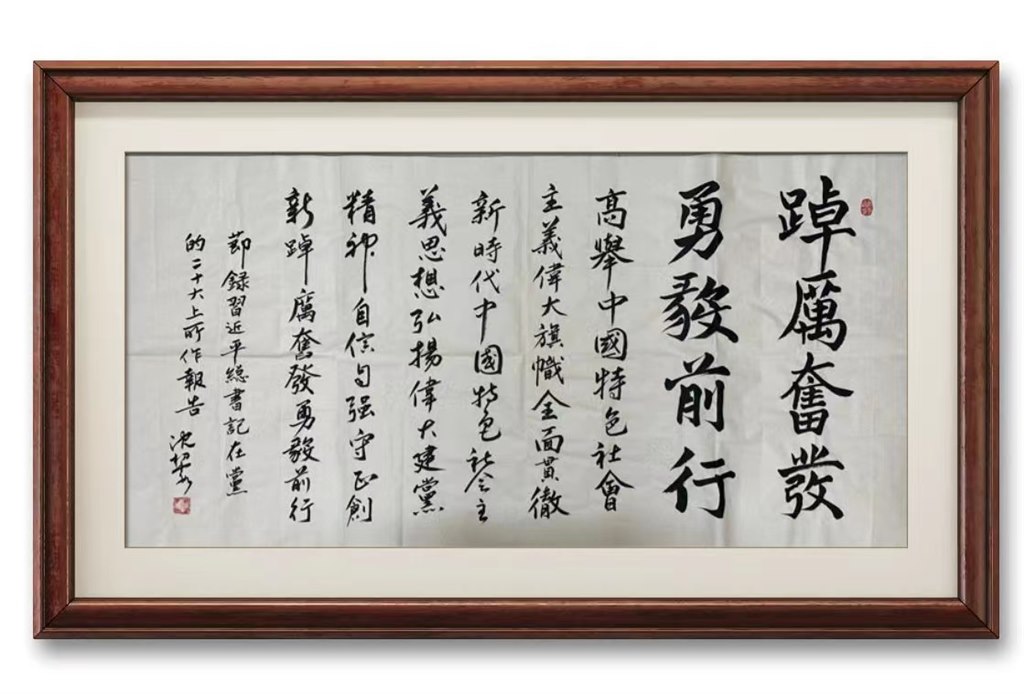 踔厲奮發
勇毅前行
高舉中國特色社會
主義偉大旗幟全面貫徹
新時代中國特色社会主
義思想弘揚偉大建黨
精神自信自强守正創
新踔厲奮發勇毅前行
莭錄習近平総書記在黨
的二十大上所作報告